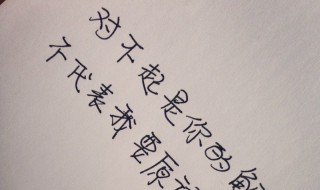 对不起是你的
不代表我要原